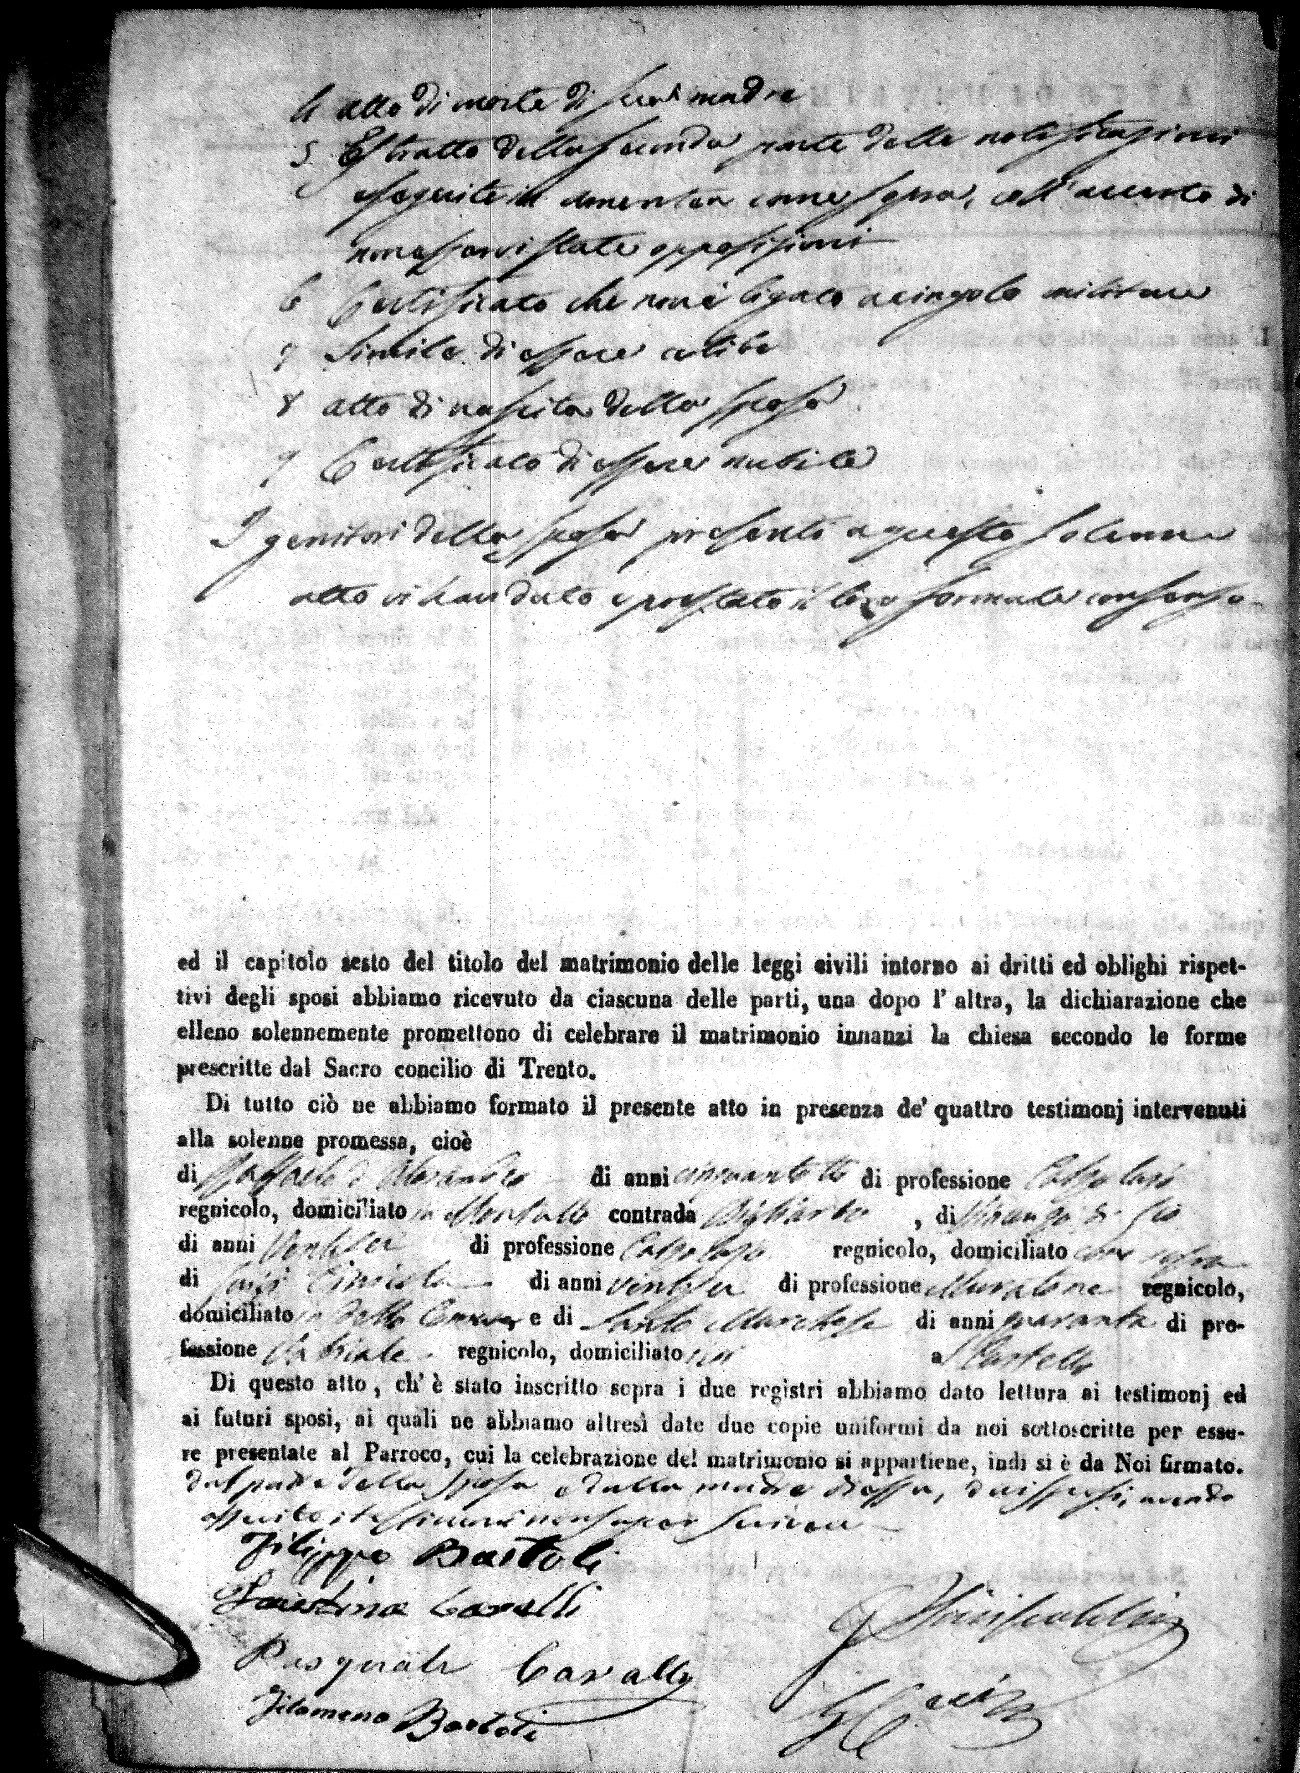 4 atto di morte di sua madre
5 Estratto della seconda parte delle notificazioni
eseguite in come sopra, coll'accerto di
non esservi state opposizioni
6 Certificato che non è ligato a cingolo militare
7 Simile di essere celibe
8 atto di nascita della sposa
9 Certificato di essere nubile
I genitori della sposa presenti a questo solenne
atto vi han dato e prestato il loro formale consenso
ed il capitolo sesto del titolo del matrimonio delle leggi civili intorno ai dritti ed oblighi rispet-
tivi degli sposi abbiamo ricevuto da ciascuna delle parti, una dopo l' altra, la dichiarazione che
elleno solennemente promettono di celebrare il matrimonio innanzi la chiesa secondo le forme
prescritte dal Sacro concilio di Trento.
Di tutto ciò ne abbiamo formato il presente atto in presenza de' quattro testimonj intervenuti
alla solenne promessa, cioè
di Raffaele di anni cinquantotto di professione Calzolajo
regnicolo, domiciliato in contrada , di
di anni Ventisei di professione Calzolajo regnicolo, domiciliato come sopra
di Luigi di anni ventisei di professione Muratore regnicolo,
domiciliato in detto Comune e di Santo Marchese di anni quaranta di pro-
fessione regnicolo, domiciliato ivi a Castello
Di questo atto, ch' è stato inscritto sopra i due registri abbiamo dato lettura ai testimonj ed
ai futuri sposi, ai quali ne abbiamo altresì date due copie uniformi da noi sottoscritte per esse-
re presentate al Parroco, cui la celebrazione del matrimonio si appartiene, indi si è da Noi firmato.
dal padre della sposa e dalla madre di essa, da sposi, avendo
asserito i testimoni non saper scrivere
Filippo Bartoli
Faustina Cavalli
Pasquale Cavallo
Filomena Bartoli